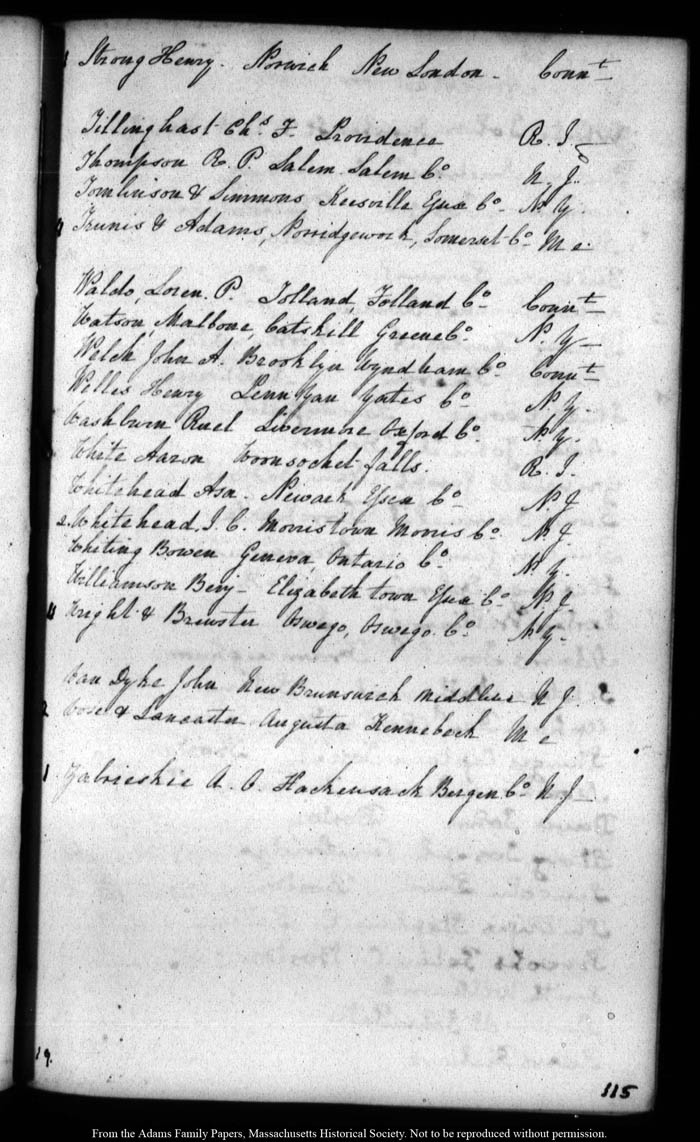 1 Strong Henry. Norwich New London - Connt
Tillinghast Chs. F. Providence R. I.
Thompson R. P. Salem. Salem Co N. J.
Tomlinson & Simmons Keesville Essex Co N. Y.
Trunis & Adams, Norridgework, Somerset Co Me.
Waldo, Loren. P. Tolland, Tolland Co Connt
Watson, Malbone, Catskill Greene Co N. Y
Welch John A. Brooklyn Wyndham Co Connt
Welles Henry Penn Yan Yates Co N. Y
Washburn Ruel Livermore Oxford Co N. Y.
White Aaron Woonsocket falls. R. I.
Whitehead Asa. Newark Essex Co N. J
2. Whitehead. I. C. Morristown Morris Co N. J.
Whiting Bowen Geneva, Ontario Co N. Y.
Williamson Benj - Elizabeth town Essex Co N. J
11 Wright & Brewster Oswego, Oswego. Co N. Y.
Van Dyke John New Brunswich Middlesex N J.
2 Vose & Lancaster Augusta Kennebeck Me
1 Zabrieskie A. O. Hackensack Bergen Co N J.
19.
115
From the Adams Family Papers, Massachusetts Historical Society. Not to be reproduced without permission.